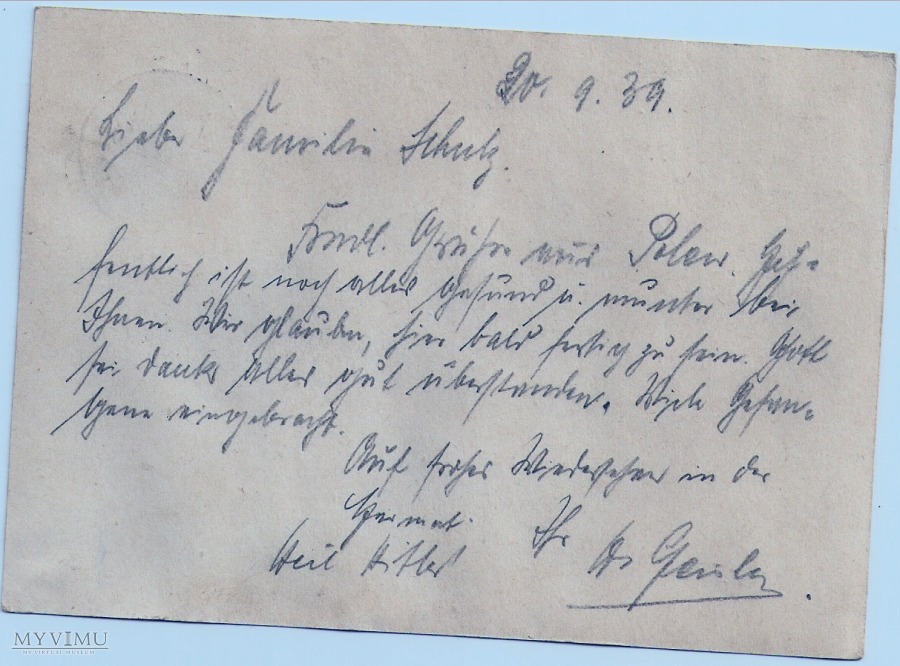 20. 9. 39.
Liebe Familie Schulz.
Freundl. Grüße aus Polen. Hof-
fentlich ist noch alles gesund u. munter bei
Ihnen. Wir glauben, hier bald fertig zu sein. Gott
sei dank alles gut überstanden. Viele Gefan-
gene eingebracht.
Auf frohes Wiedersehen in der
Heimat. Ihr
Heil Hitler
MYVIMU
MY VIRTUAL MUSEUM